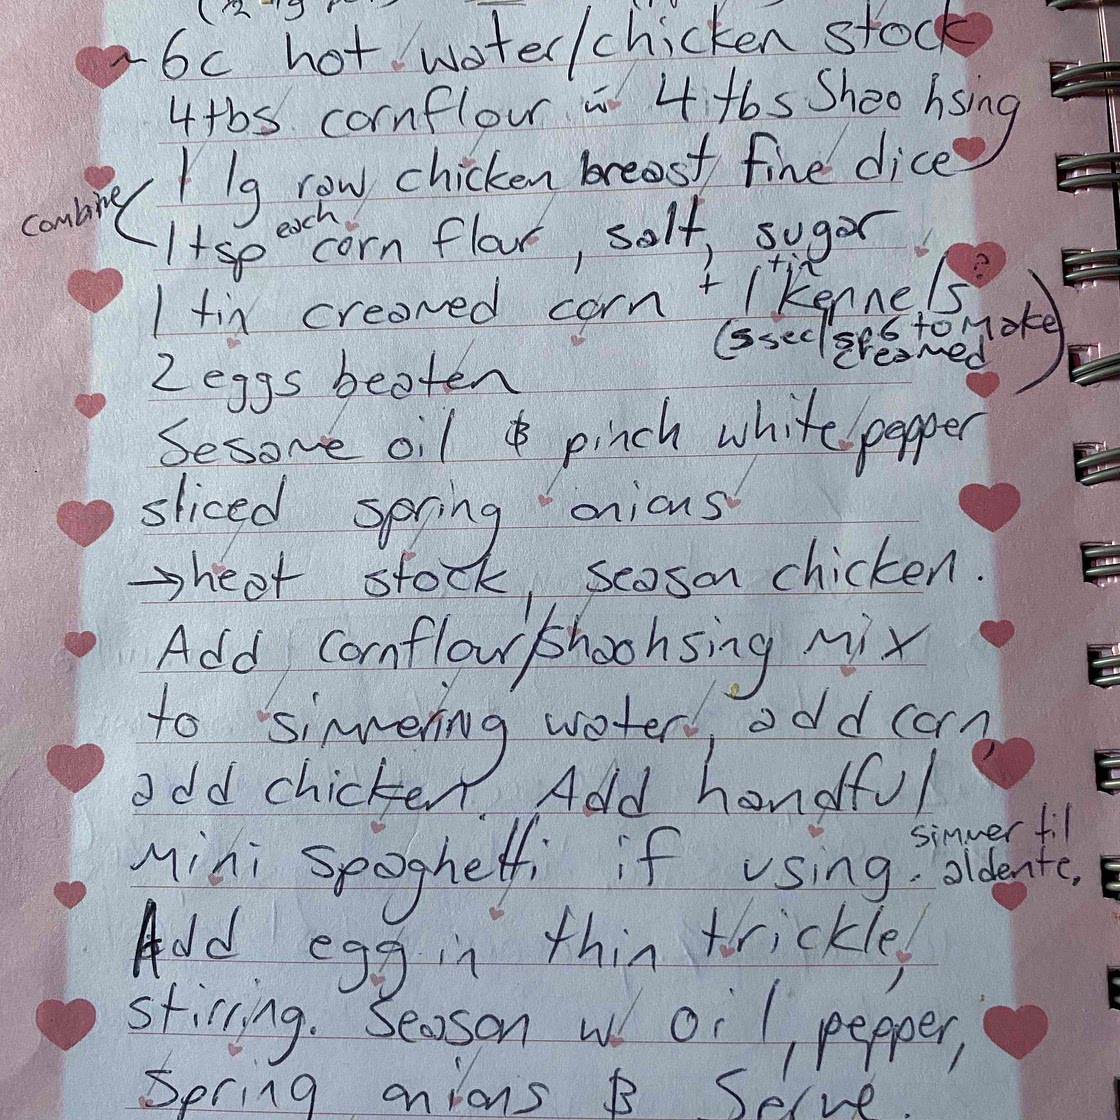 ~ 6c hot water/chicken stock
4tbs cornflour w 4 tbs Shao hsing
combine ( 1 lg raw chicken breast fine dice
1tsp each corn flour, salt, sugar
1 tin creamed corn + 1 tin kernels?
(5sec/sp6 to make creamed)
2 eggs beaten
Sesame oil & pinch white pepper
sliced spring onions
→heat stock, season chicken.
Add cornflour/shaohsing mix
to simmering water, add corn,
add chicken. Add handful
mini spaghetti if using. simmer til aldente.
Add egg in thin trickle,
stirring. Season w oil, pepper,
spring onions & serve.